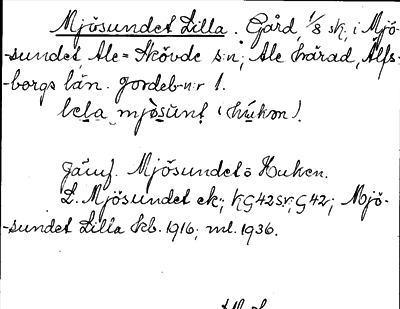 Mjösundet Lilla. Gård, 1/8 sk, i Mjö-
-sundet Ale-Skövde s:n, Ale härad, Älfs-
-borgs län. Jordeb-n:r 1.
lela mjòsunt (húkǝn).
Jämf. Mjösundet o Huken.
L. Mjösundet ek; KG42sr; G42; Mjö-
-sundet Lilla kb. 1916; ml. 1936.